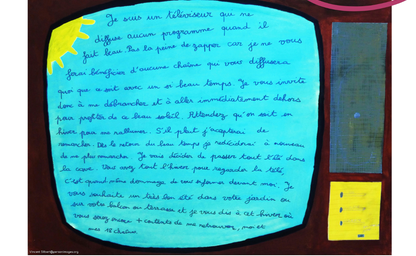 Je suis un téléviseur qui ne
diffuse aucun programme quand il
fait beau. Pas la peine de zapper car je ne vous
ferai bénéficier d'aucune chaîne qui vous diffusera
quoi que ce soit avec un si beau temps. Je vous invite
donc à me débrancher et à aller immédiatement dehors
pour profiter de ce beau soleil. Attendez qu'on soit en
hiver pour me rallumer. S'il pleut j'accepterai de
remarcher. Dès le retour du beau temps je redéciderai à nouveau
de ne plus remarcher. Je vais décider de passer tout l'été dans
la cave. Vous avez tout l'hiver pour regarder la télé,
c'est quand même dommage de vous enfermer devant moi. Je
vous souhaite un très bon été dans votre jardin ou
sur votre balcon ou terrasse et je vous dis à cet hiver où
vous serez content de me retrouver, moi et
mes chaînes